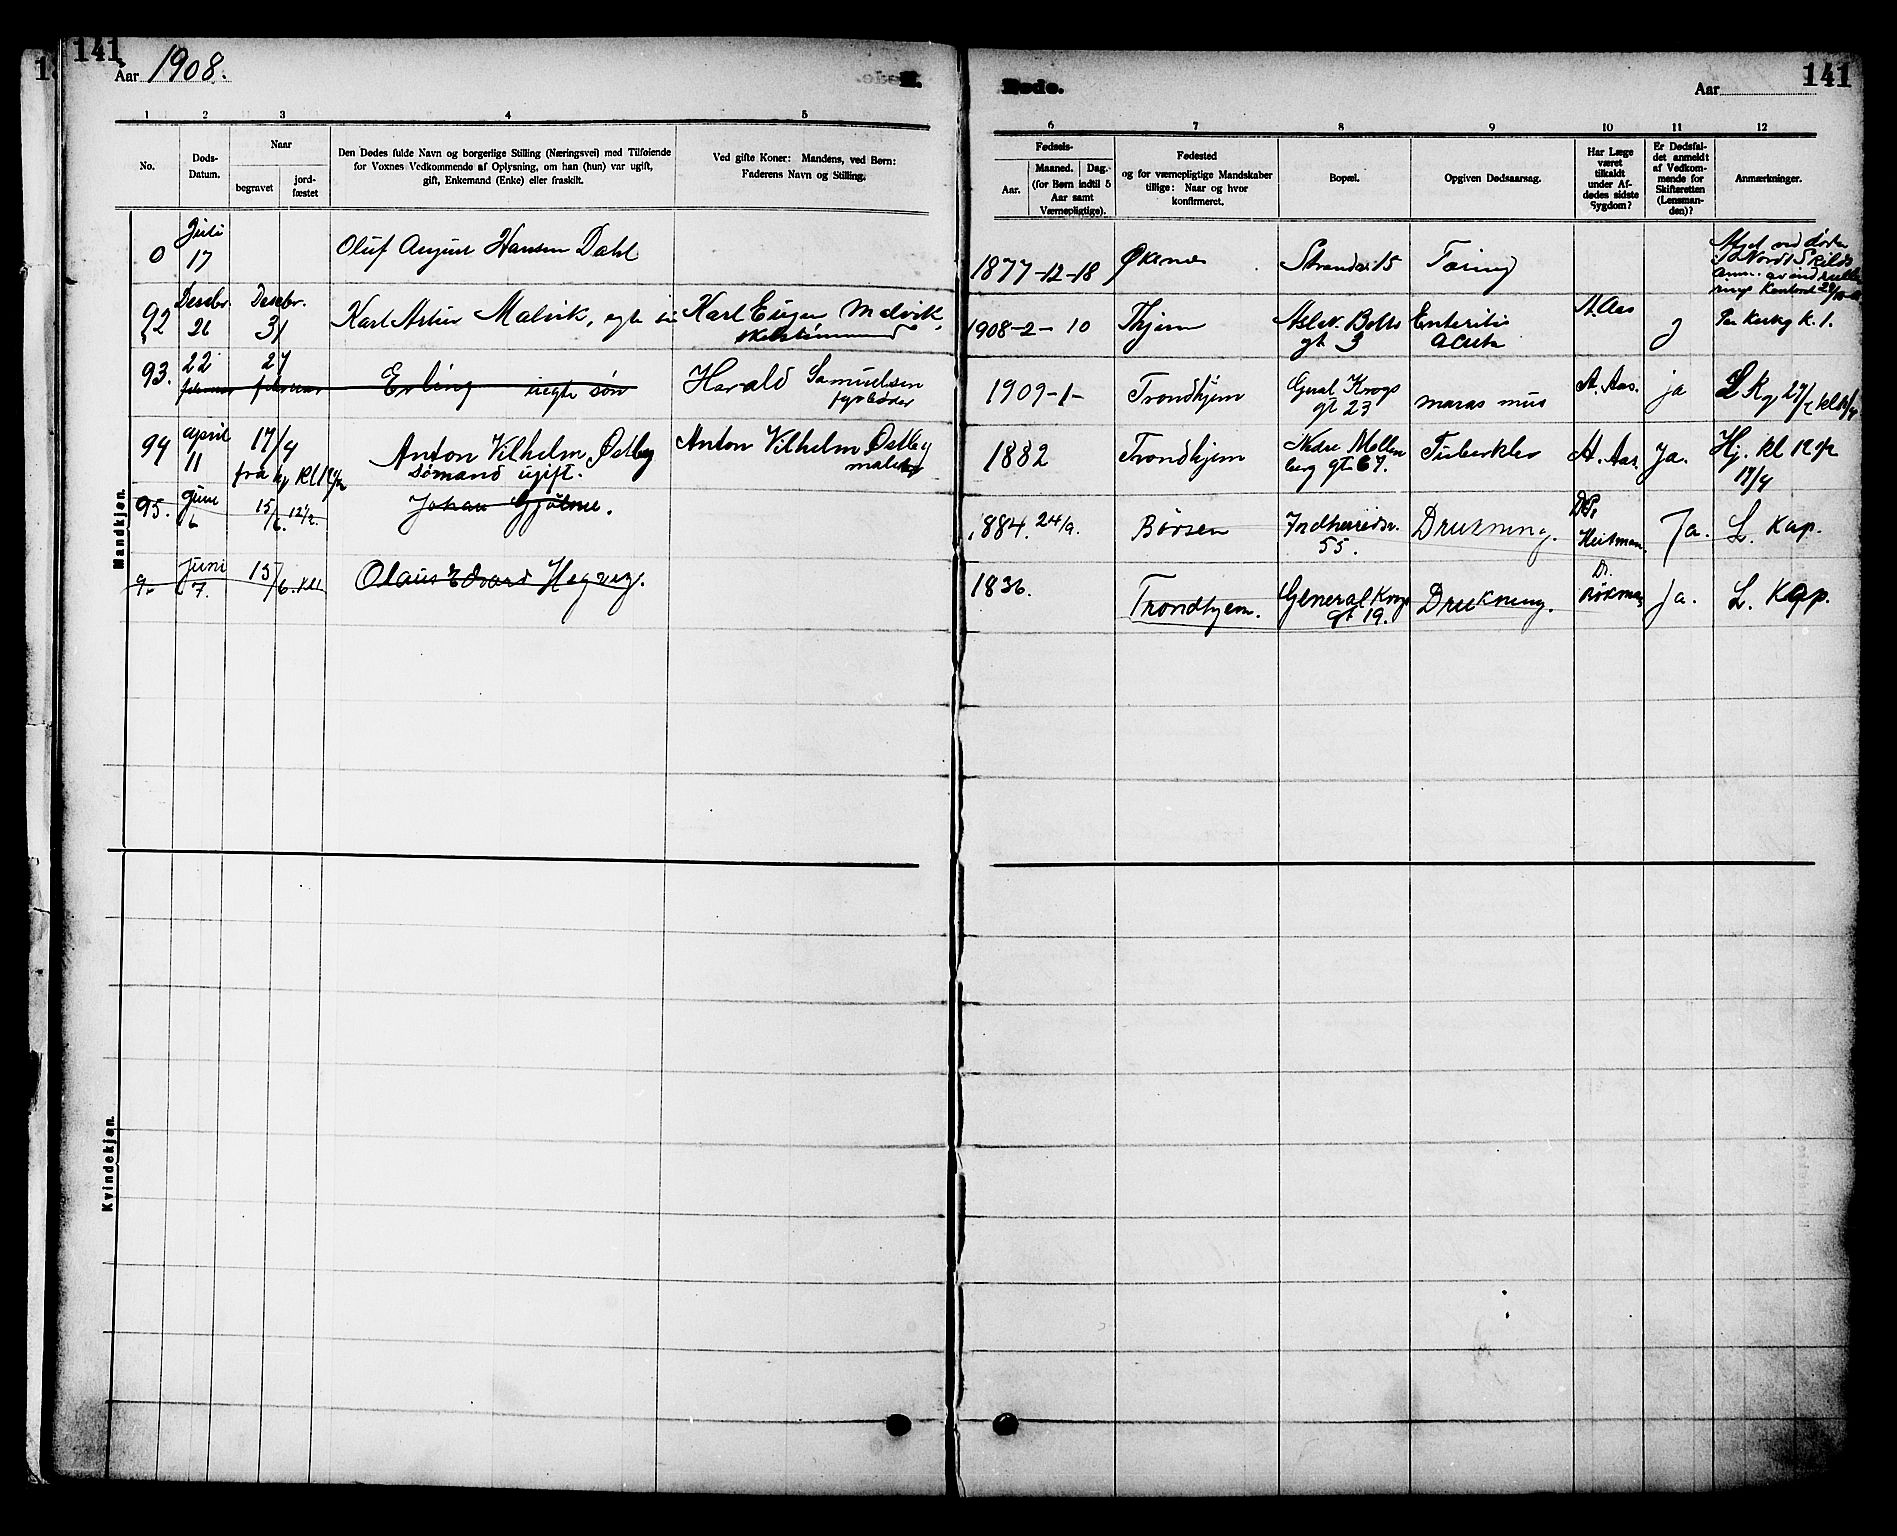 141
Aar 1908.
Døde.
141
Aar
1 2 3 4 5 6 7 8 9 10 11 12
No.
Døds-
Datum.
Naar
begravet
jord-
fæstet
Den Dødes fulde Navn og borgerlige Stilling (Næringsvei) med Tilføiende
for Voxnes Vedkommende af Oplysning, om han (hun) var ugift,
gift, Enkemand (Enke) eller fraskilt.
Ved gifte Koner: Mandens, ved Børn:
Faderens Navn og Stilling.
Fødsels-
Aar.
Maaned. Dag.
(for Børn indtil 5
Aar samt
Værnepligtige).
Fødested
og for værnepligtige Mandskaber
tillige: Naar og hvor
konfirmeret.
Bopæl.
Opgiven Dødsaarsag.
Har Læge
været
tilkaldt
under Af-
dødes sidste
Sygdom?
Er Dødsfal-
det anmeldt
af Vedkom-
mende for
Skifteretten
(Lensman-
den)?
Anmærkninger.
Mandkjøn.
0 Juli 17 Oluf August Hansen Dahl 1877-12-18 Øksnes Strandv. 15 Tæring
92 Desebr. 26 Desebr. 31 Karl Artur Malvik, egte Karl Eugen Malvik, 1908-2-10 Thjem Aslak Bolts gt 3 Enteritis acuta A. Aas J K. 1.
93. 22 februar 27 februar Erling uegte søn Harald Samuelsen fyrbøder 1909-1- Trondhjem Gnal Krogs gt 23 maras mus A. Aas. ja
94 april 11 17/4 Anton Vilhelm Østby Sømand ugift. Anton Vilhelm Østby 1882 Trondhjem Nedre Møllenberg gt. 67. Tuberklos A. Aas Ja. Hj. kl 12 1/2 17/4
95. Juni 6 15/6. 12 1/2. Johan Gjølme. 1884. 24/9. Børsen Indherredsv. 55. Drukning. Dr. Heitman. Ja. L. Kap.
9. Juni 7. 15/6. Olaus Edvard Hegvey. 1836. Trondhjem. General Krogs gt 19. Drukning. Dr. Ja. L. Kap.
Kvindekjøn.